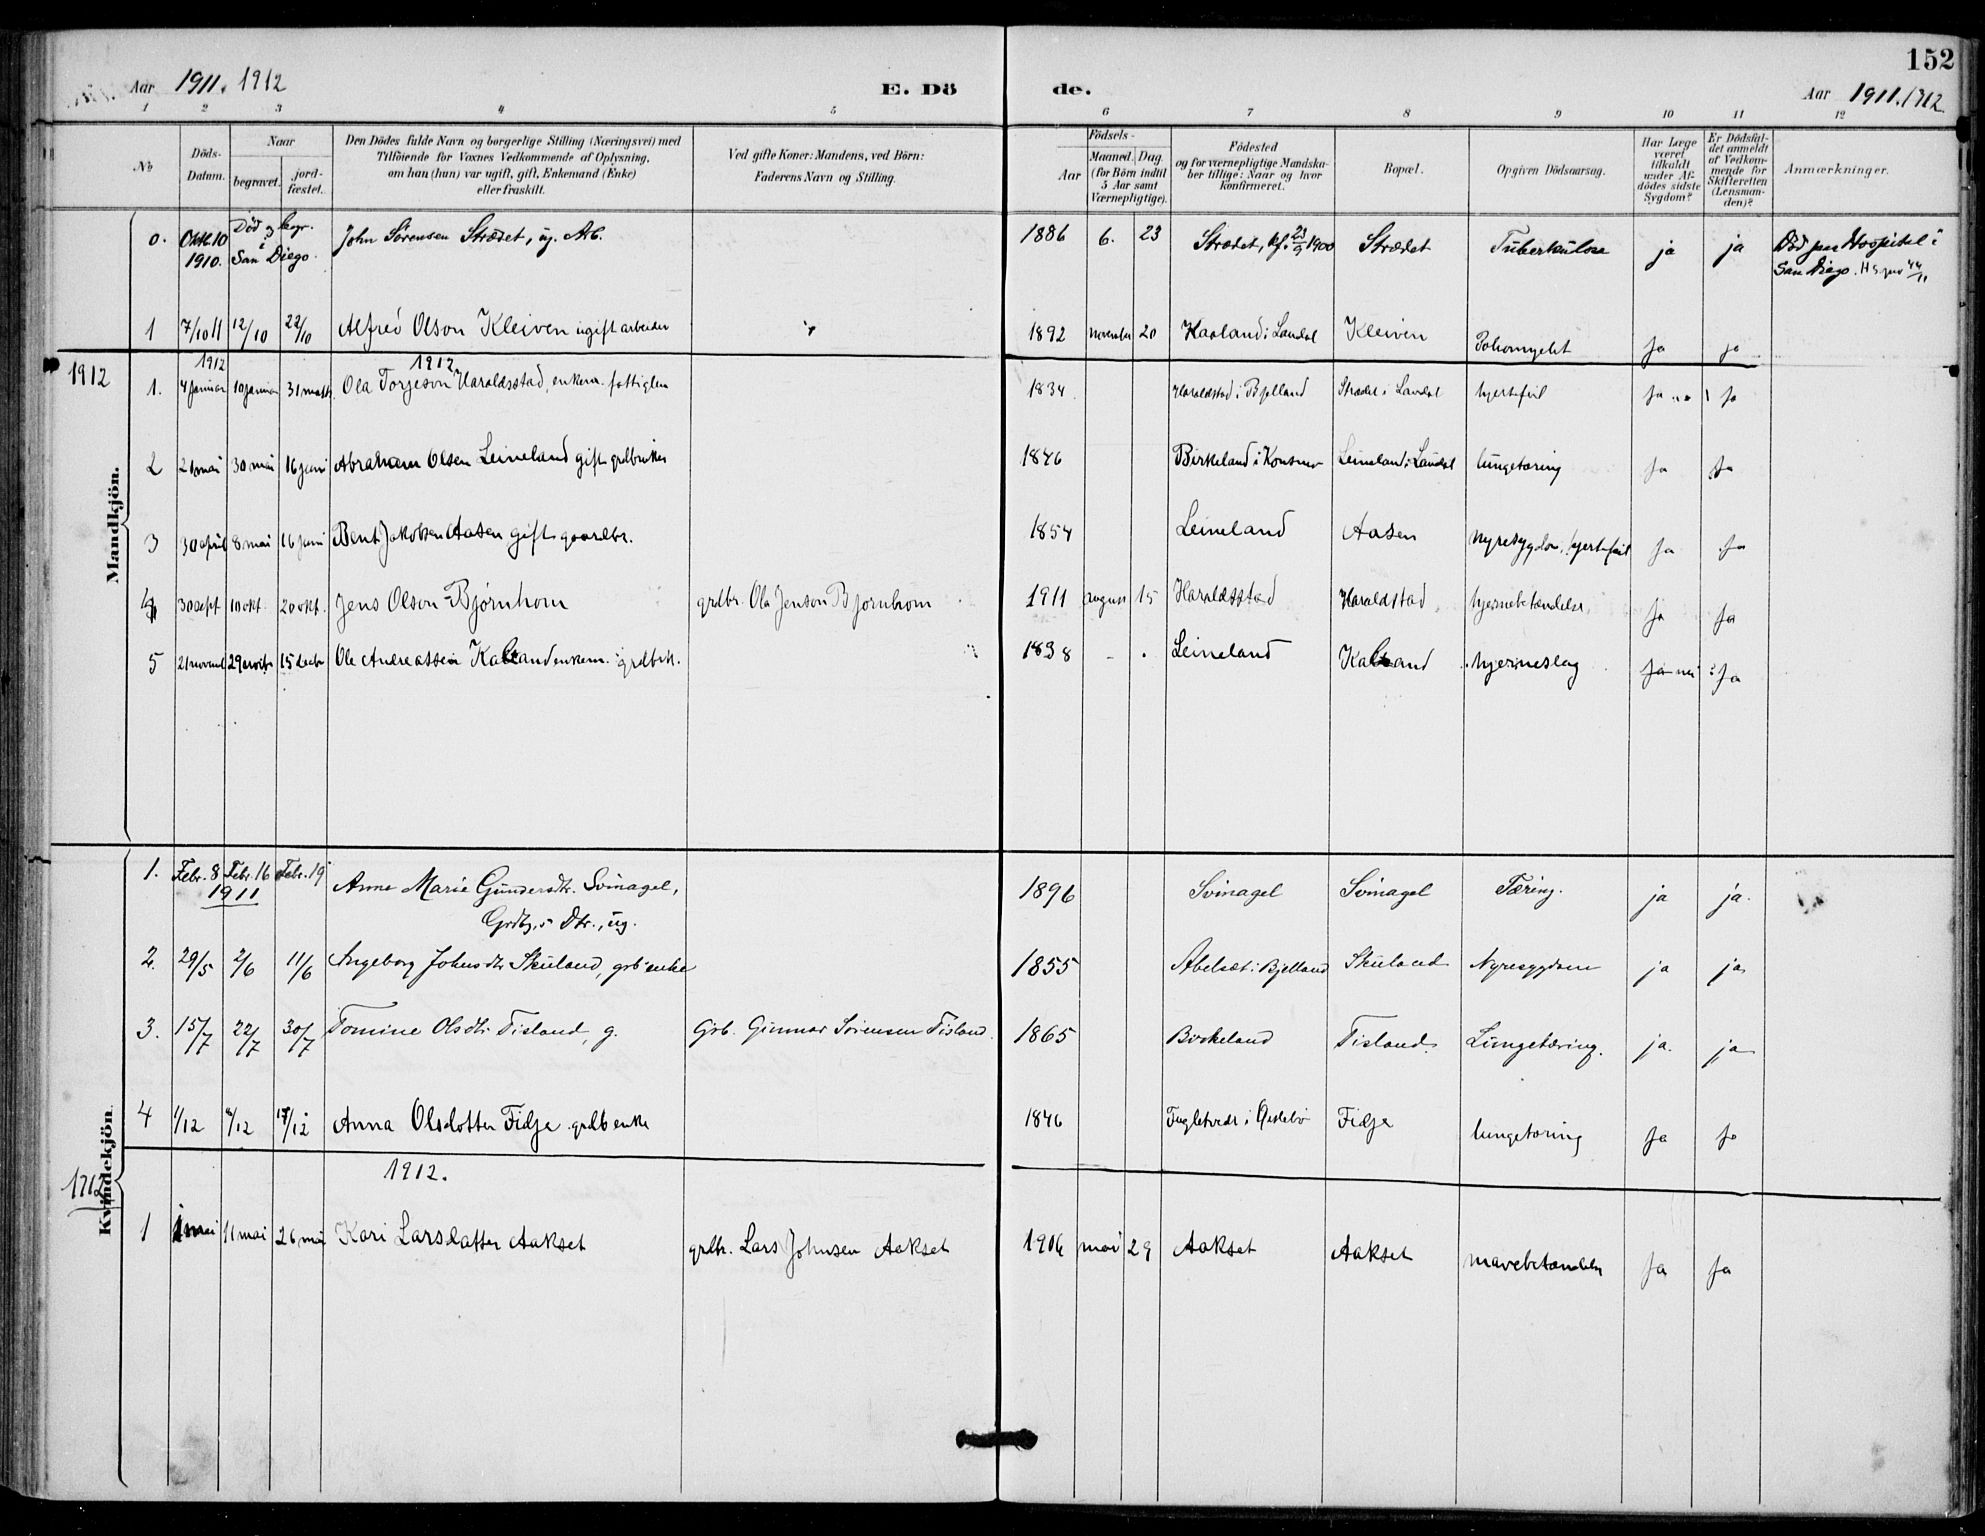 152
Aar 1911. 1912 E. Dö de. Aar 1911. 1912
1 2 3 4 5 6 7 8 9 10 11 12
No
Döds-Datum.
Naar
begravet.
jord-fæstet.
Den Dödes fulde Navn og borgerlige Stilling (Næringsvei) med
Tilföiende for Voxnes Vedkommende af Oplysning,
om han (hun) var ugift, gift, Enkemand (Enke)
eller fraskilt.
Ved gifte Koner: Mandens, ved Börn:
Faderens Navn og Stilling.
Födsels-
Aar
Maaned. Dag
(for Börn indtil
5 Aar samt
Værnepligtige).
Födested
og for værnepligtige Mandska-
ber tillige: Naar og hvor
konfirmeret.
Bopæl.
Opgiven Dödsaarsag.
Har Læge
været
tilkaldt
under Af-
dödes sidste
Sygdom?
Er Dödsfal-
det anmeldt
af Vedkom-
mende for
Skifteretten
(Lensman-
den)?
Anmærkninger.
Mandkjön.
0. Okt. 10 1910. Död og begr. i San Diego. John Sörensen Strædet, ug. Arb. 1886 6. 23 Strædet, kf. 23/9 1900 Strædet Tuberkulose ja ja Död paa Hospital i San Diego.
1 7/10 11 12/10 22/10 Alfred Olson Kleiven ugift arbeider 1892 november 20 Haaland i Laudal Kleiven ja ja
1912 1912 1912.
1. 4 januar 10 januar 31 marts Ola Torjeson Haraldsstad, enkem. fattiglem 1834 Haraldstad i Bjelland Strædet i Laudal hjertefeil ja ja
2 21 mai 30 mai 16 juni Abraham Olsen Leineland gift grdbruker 1846 Birkeland i Konsmo Leineland i Laudal lungetæring ja ja
3 30 april 8 mai 16 juni Bent Jakobsen Aasen gift gaardbr. 1854 Leineland Aasen nyresygdom, hjertefeil ja ja
4 30 sept 10 okt. 20 okt. Jens Olson Bjørnhom grdbr. Ola Jenson Bjørnhom 1911 august 15 Haraldsstad Haraldstad hjernebetændelse ja ja
5 21 novemb 29 novbr 15 decbr Ole Andreassen Kaland enkem. grdbrk. 1838 - . Leineland Kaland hjerneslag ja nei ja
Kvindekjön.
1. Febr. 8 1911 Febr. 16 Febr. 19 Anne Marie Gundersdtr. Svinagel, 1896 Svinagel Svinagel Tæring. ja ja.
Grdbg.s Dtr., ug.
2. 29/5 2/6 11/6 Angeborg Johnsdtr Skuland, grb enke 1855 Abelset i Bjelland Skuland Nyresygdom ja ja
3. 15/7 22/7 30/7 Tomine Olsdtr. Tisland, g. Grb. Gunnar Sörensen Tisland. 1865 Birkeland Tisland. Lungetæring. ja. ja
4 1/12 8/12 17/12 Anna Olsdotter Fidje grdb enke 1846 Fugletvedt i Øislebø Fidje lungetæring ja ja
1912 1912.
1 1 mai 11 mai 26 mai Kari Larsdatter Aakset grdbr. Lars Johnsen Aakset 1906 mai 29 Aakset Aakset mavebetændelse ja ja